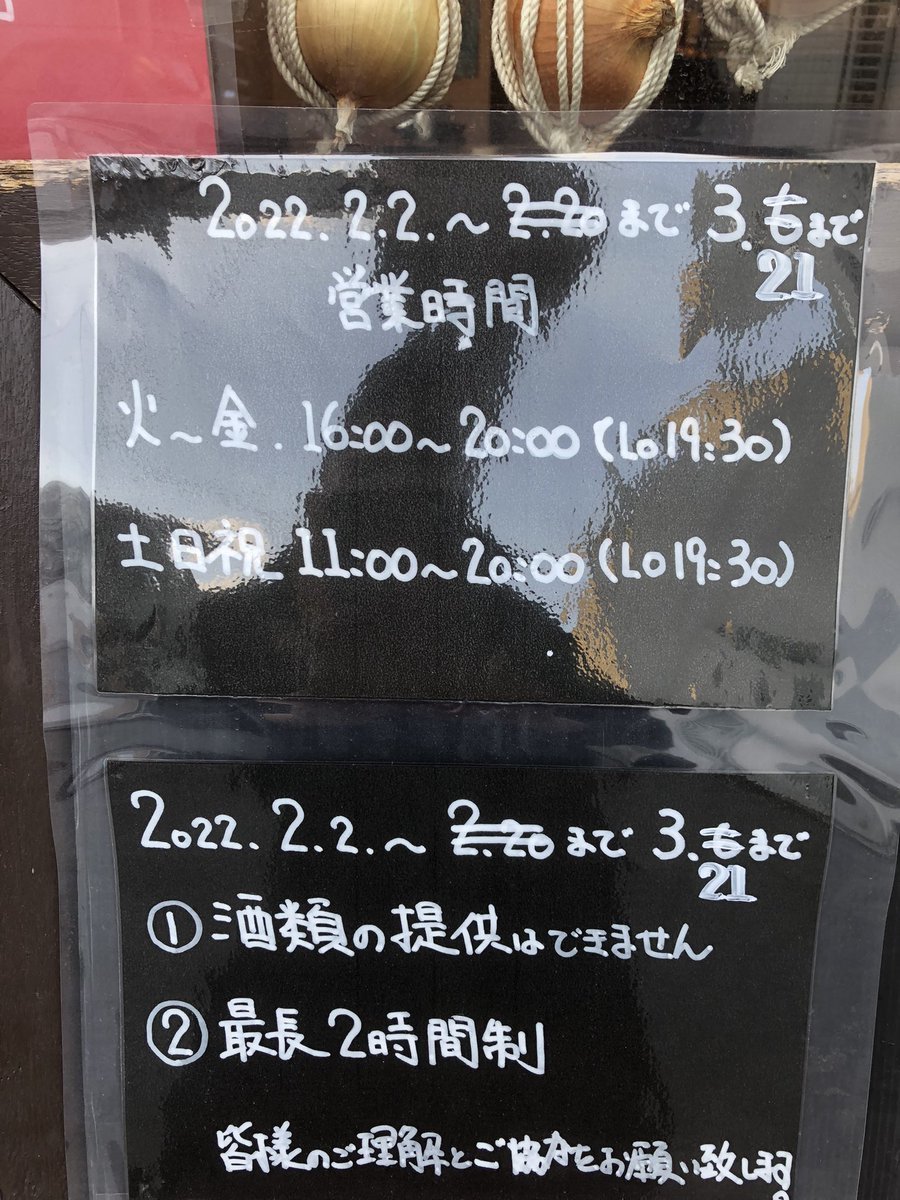 2022.2.2.～2.20まで 3.6まで
21
営業時間
火～金.16:00～20:00(LO19:30)
土日祝 11:00～20:00(LO19:30)
2022.2.2.～2.20まで 3.6まで
21
①酒類の提供はできません
②最長2時間制
皆様のご理解とご協力をお願い致します。